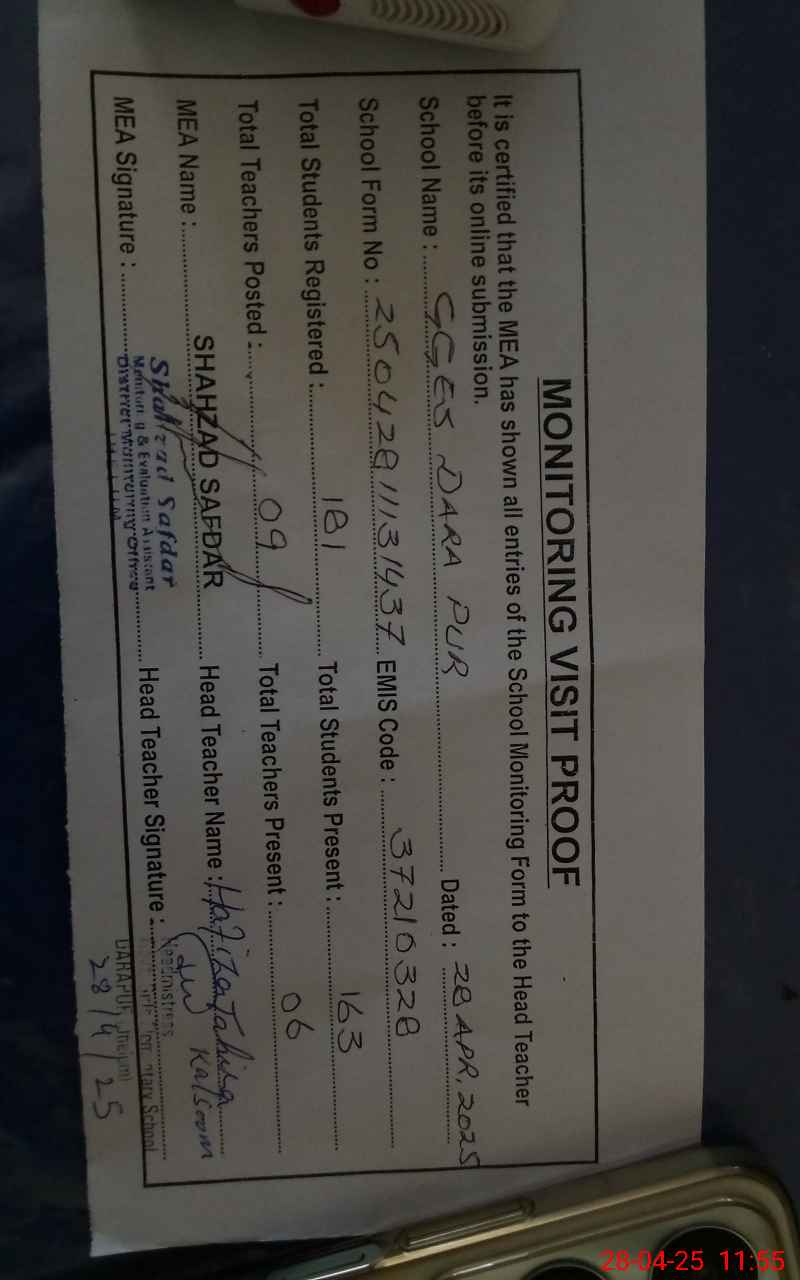 MONITORING VISIT PROOF
It is certified that the MEA has shown all entries of the School Monitoring Form to the Head Teacher
before its online submission.
School Name : GGES DARA PUR Dated : 28 APR, 2025
School Form No : 25042811131437 EMIS Code : 37210328
Total Students Registered : 181 Total Students Present : 163
Total Teachers Posted : 09 Total Teachers Present : 06
MEA Name : SHAHZAD SAFDAR Head Teacher Name : Hafiza Tahira Kalsoom
MEA Signature : Head Teacher Signature :
Shahzad Safdar
Monitoring & Evaluation Assistant
District Monitoring Office
Headmistress
School
DARAPUR Jhelum
28/4/25
28-04-25 11:55